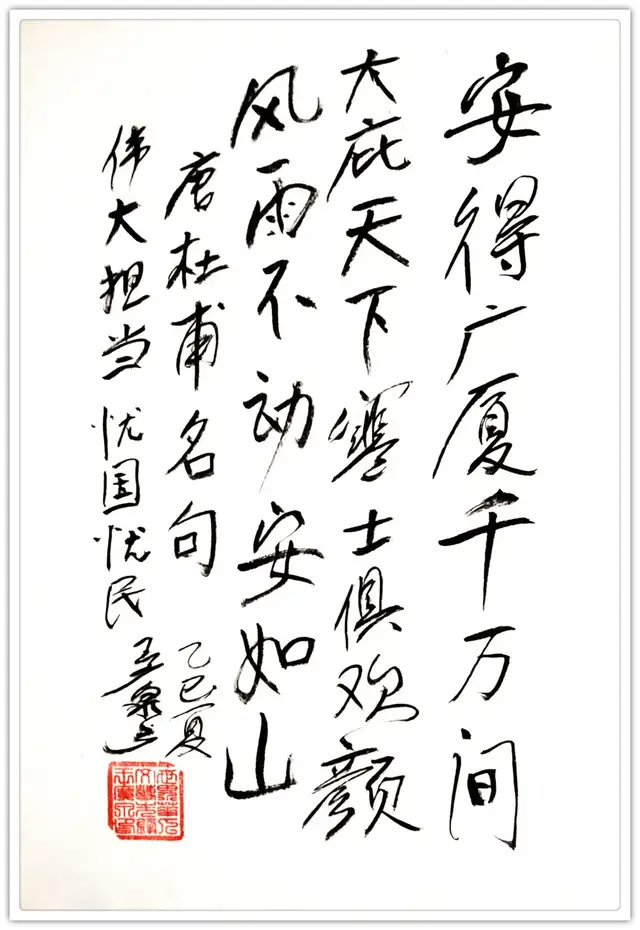 安得广厦千万间
大庇天下寒士俱欢颜
风雨不动安如山
唐杜甫名句
伟大担当忧国忧民
乙巳夏